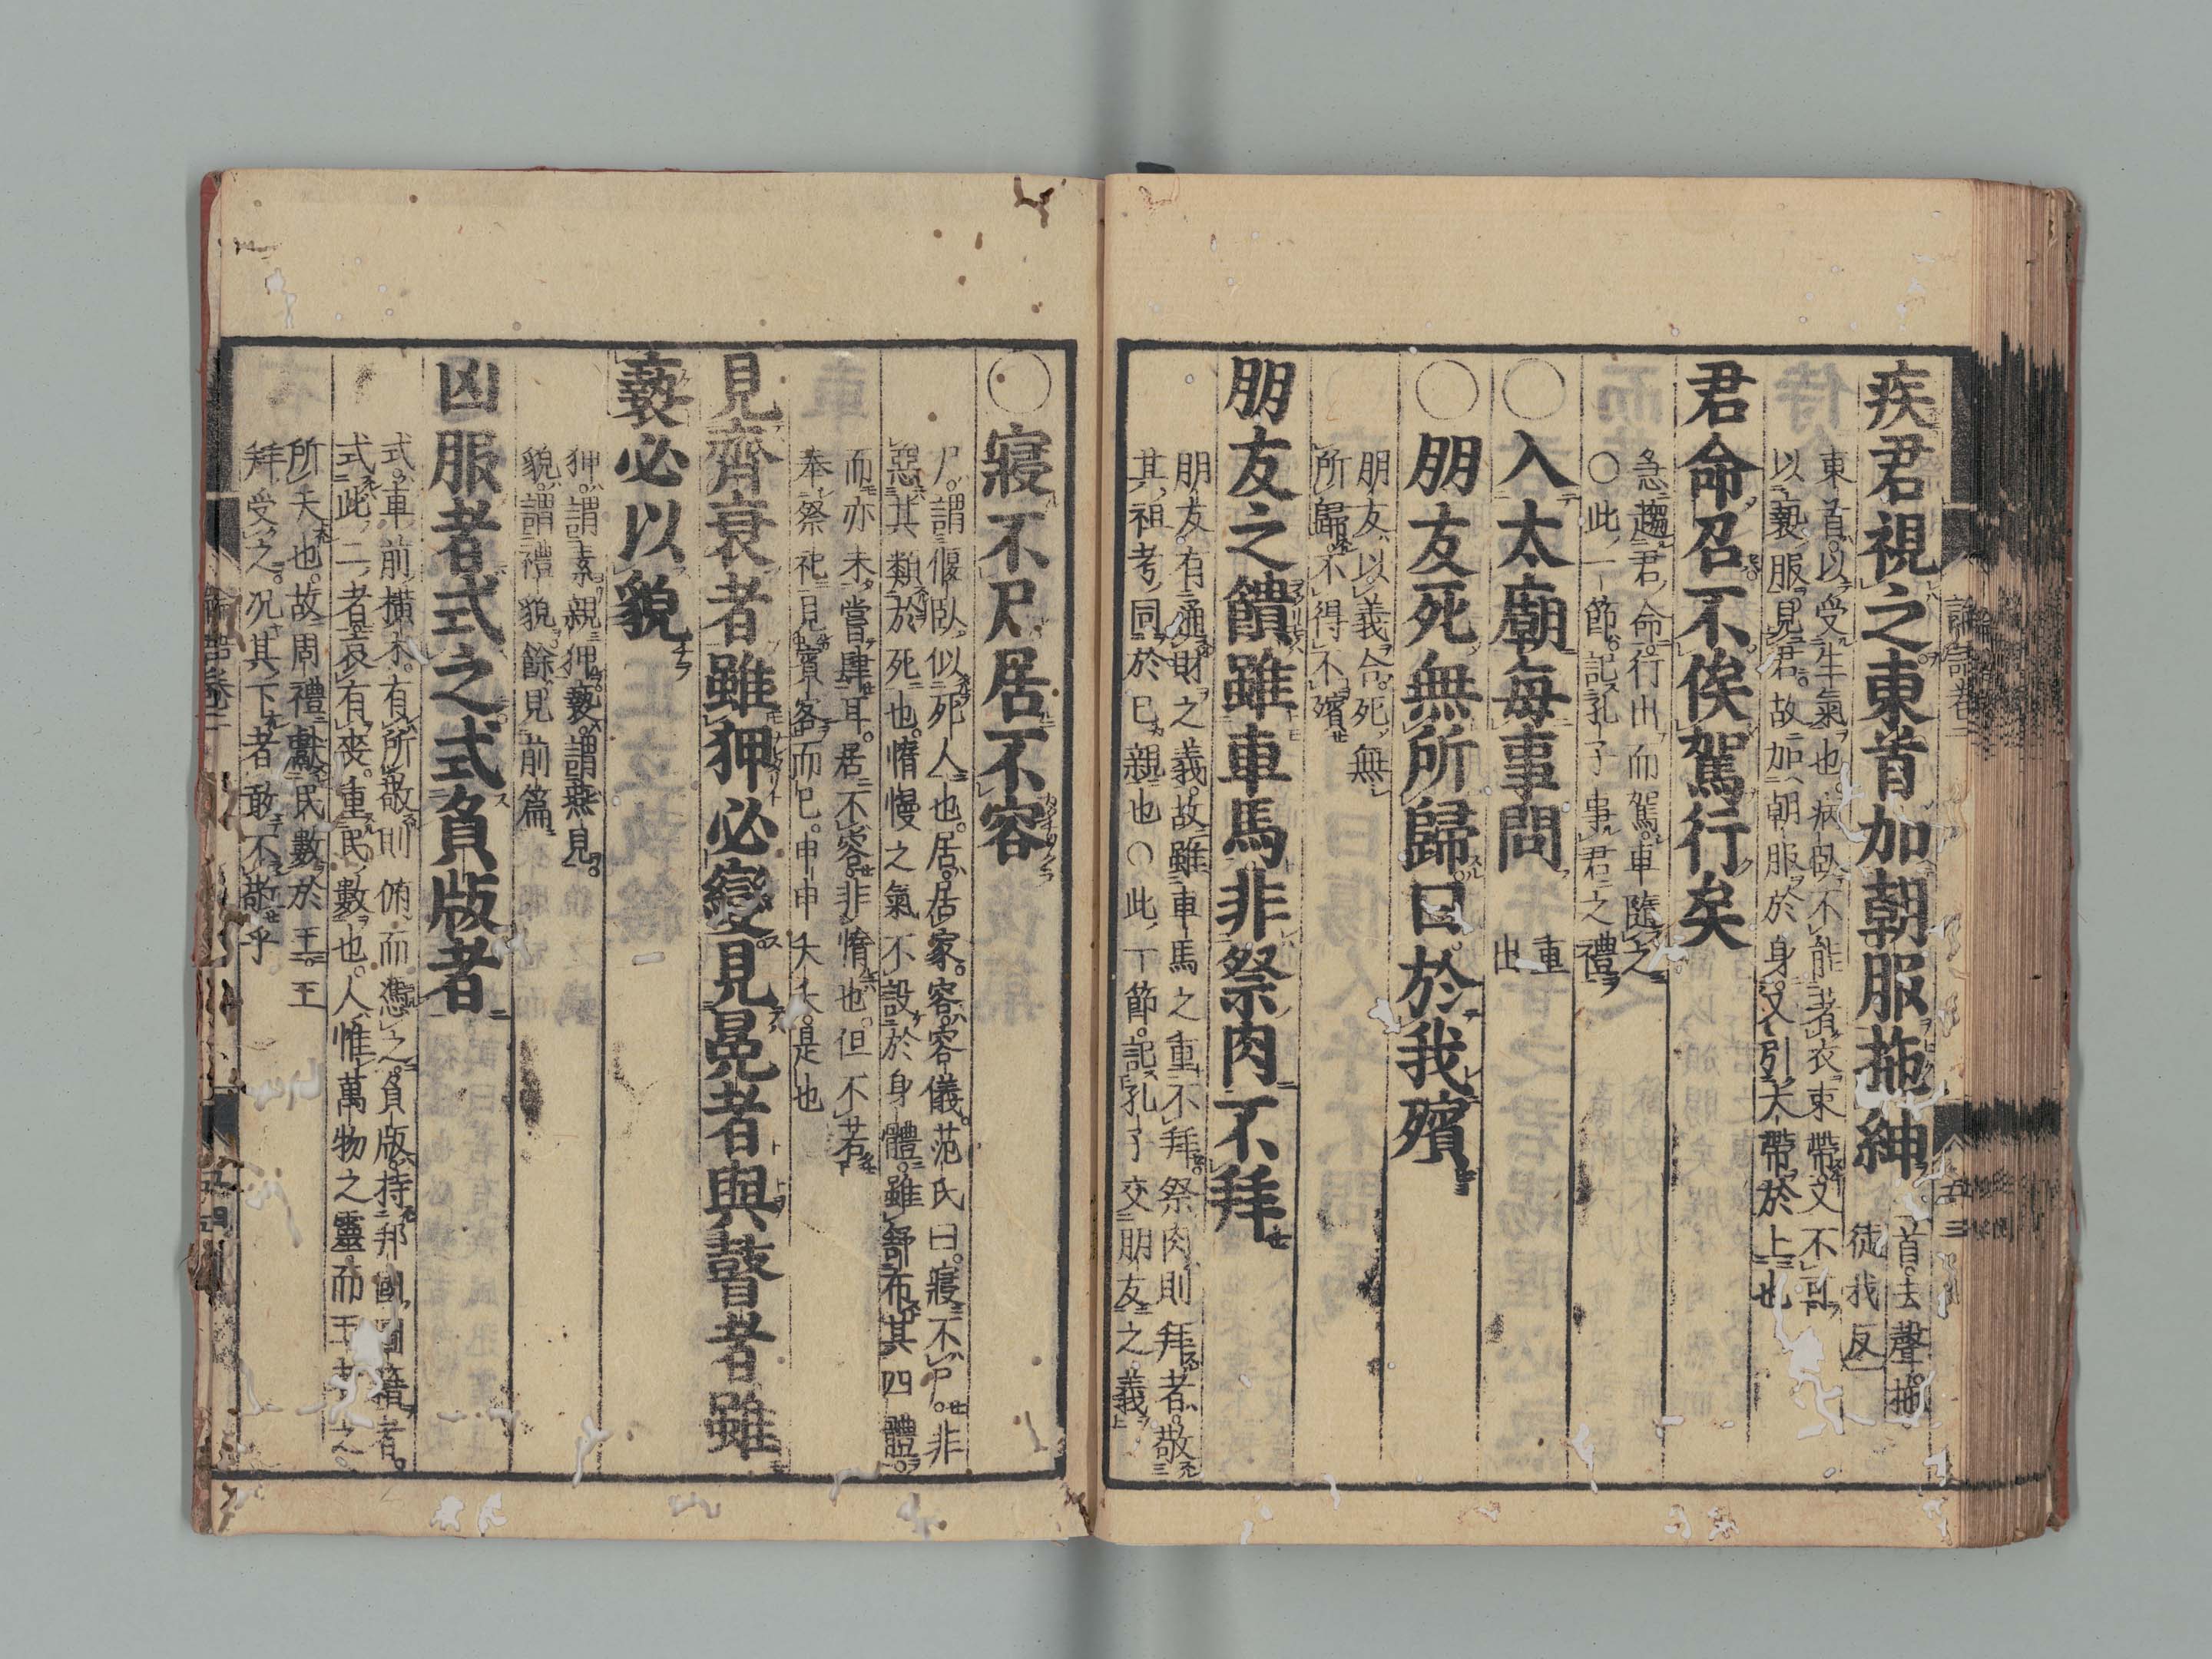 疾君視之東首加朝服拖紳
首去聲拖
徒我反
東首以受生氣也病臥不能著衣束帶又不可
以褻服見君故加朝服於身又引大帶於上也
君命召不俟駕行矣
急趨君命行出而駕車隨之
○此一節記孔子事君之禮
○入太廟每事問
重出
○朋友死無所歸曰於我殯
朋友以義合死無
所歸不得不殯
朋友之饋雖車馬非祭肉不拜
朋友有通財之義故雖車馬之重不拜祭肉則拜者敬
其祖考同於己親也○此一節記孔子交朋友之義
○寢不尸居不容
尸謂偃臥似死人也居居家容容儀范氏曰寢不尸非
惡其類於死也惰慢之氣不設於身體雖舒布其四體
而亦未嘗肆耳居不容非惰也但不若
奉祭祀見賓客而已申申夭夭是也
見齊衰者雖狎必變見冕者與瞽者雖
褻必以貌
狎謂素親狎褻謂燕見
貌謂禮貌餘見前篇
凶服者式之式負版者
式車前橫木有所敬則俯而憑之負版持邦國圖籍者
式此二者哀有喪重民數也人惟萬物之靈而王者之
所天也故周禮獻民數於王王
拜受之況其下者敢不敬乎